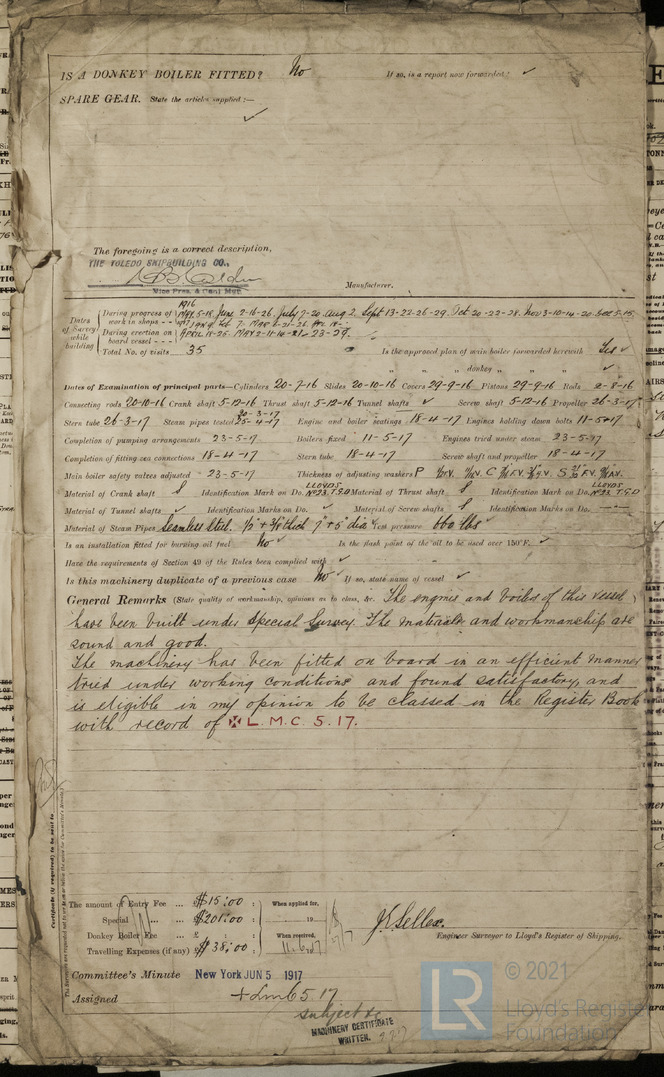 IS A DONKEY BOILER FITTED? No If so, is a report now forwarded? ✓
SPARE GEAR. State the articles supplied:— ✓
The foregoing is a correct description,
THE TOLEDO SHIPBUILDING CO.,
Vice Pres. & Genl Mgr. Manufacturer.
1916
Dates of Survey while building
During progress of work in shops - - May 5-18, June 2-16-26, July 7-20, Aug 2, Sept 13-22-26-29, Oct 20-22-28, Nov 3-10-14-20, Dec 5-15,
During erection on board vessel - - - April 18-25, May 2-11-16-21-23-29.
Total No. of visits 35 Is the approved plan of main boiler forwarded herewith Yes ✓
" " " donkey " " " ✓
Dates of Examination of principal parts—Cylinders 20-7-16 Slides 20-10-16 Covers 29-9-16 Pistons 29-9-16 Rods 2-8-16
Connecting rods 20-10-16 Crank shaft 5-12-16 Thrust shaft 5-12-16 Tunnel shafts ✓ Screw shaft 5-12-16 Propeller 26-3-17
Stern tube 26-3-17 Steam pipes tested 20-3-17 25-4-17 Engine and boiler seatings 18-4-17 Engines holding down bolts 11-5-17
Completion of pumping arrangements 23-5-17 Boilers fixed 11-5-17 Engines tried under steam 23-5-17
Completion of fitting sea connections 18-4-17 Stern tube 18-4-17 Screw shaft and propeller 18-4-17
Main boiler safety valves adjusted 23-5-17 Thickness of adjusting washers P
Material of Crank shaft S Identification Mark on Do. LLOYDS No 23. T.G.D Material of Thrust shaft S Identification Mark on Do. LLOYDS No 23. T.G.D
Material of Tunnel shafts ✓ Identification Marks on Do. ✓ Material of Screw shafts S Identification Marks on Do. —"—
Material of Steam Pipes Seamless Steel. Test pressure 660 lbs ✓
Is an installation fitted for burning oil fuel No ✓ Is the flash point of the oil to be used over 150°F. ✓
Have the requirements of Section 49 of the Rules been complied with ✓
Is this machinery duplicate of a previous case No ✓ If so, state name of vessel ✓
General Remarks (State quality of workmanship, opinions as to class, &c. The engines and boilers of this vessel
have been built under Special Survey. The materials and workmanship are
sound and good.
The machinery has been fitted on board in an efficient manner
tried under working conditions and found satisfactory, and
is eligible in my opinion to be classed in the Register Book
with record of ✠ L.M.C. 5.17.
The amount of Entry Fee ... $15:00 : When applied for,
Special ... $201:00 : 19
Donkey Boiler Fee ... £ : When received,
Travelling Expenses (if any) £ $38:00 : 11.6.17
Engineer Surveyor to Lloyd's Register of Shipping.
Committee's Minute New York JUN 5 1917
Assigned + Lmc 5.17
subject to
MACHINERY CERTIFICATE
WRITTEN.
LR
© 2021
Lloyd's Register
Foundation